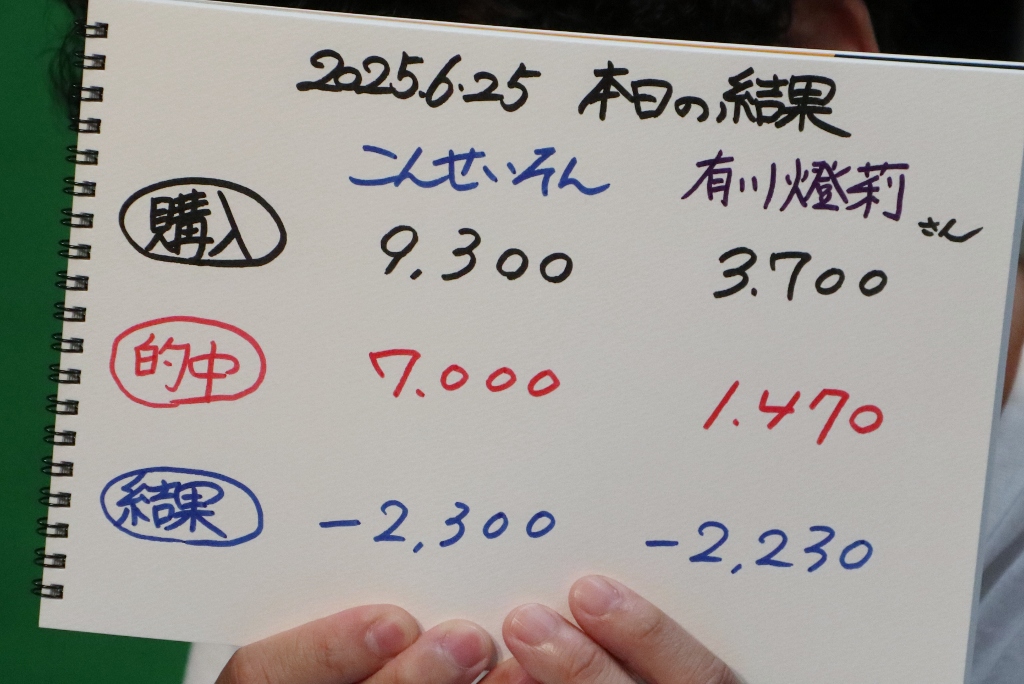 2025.6.25 本日の結果
こんせいそん 有川燈莉さん
購入 9,300 3.700
的中 7.000 1.470
結果 -2,300 -2,230